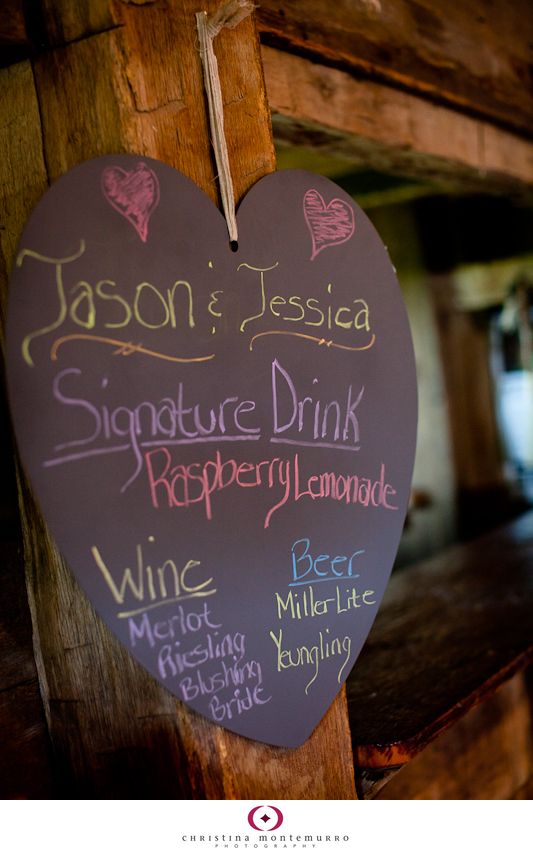 Jason & Jessica
Signature Drink
Raspberry Lemonade
Wine
Merlot
Riesling
Blushing
Bride
Beer
Miller Lite
Yeungling
christina montemurro
PHOTOGRAPHY